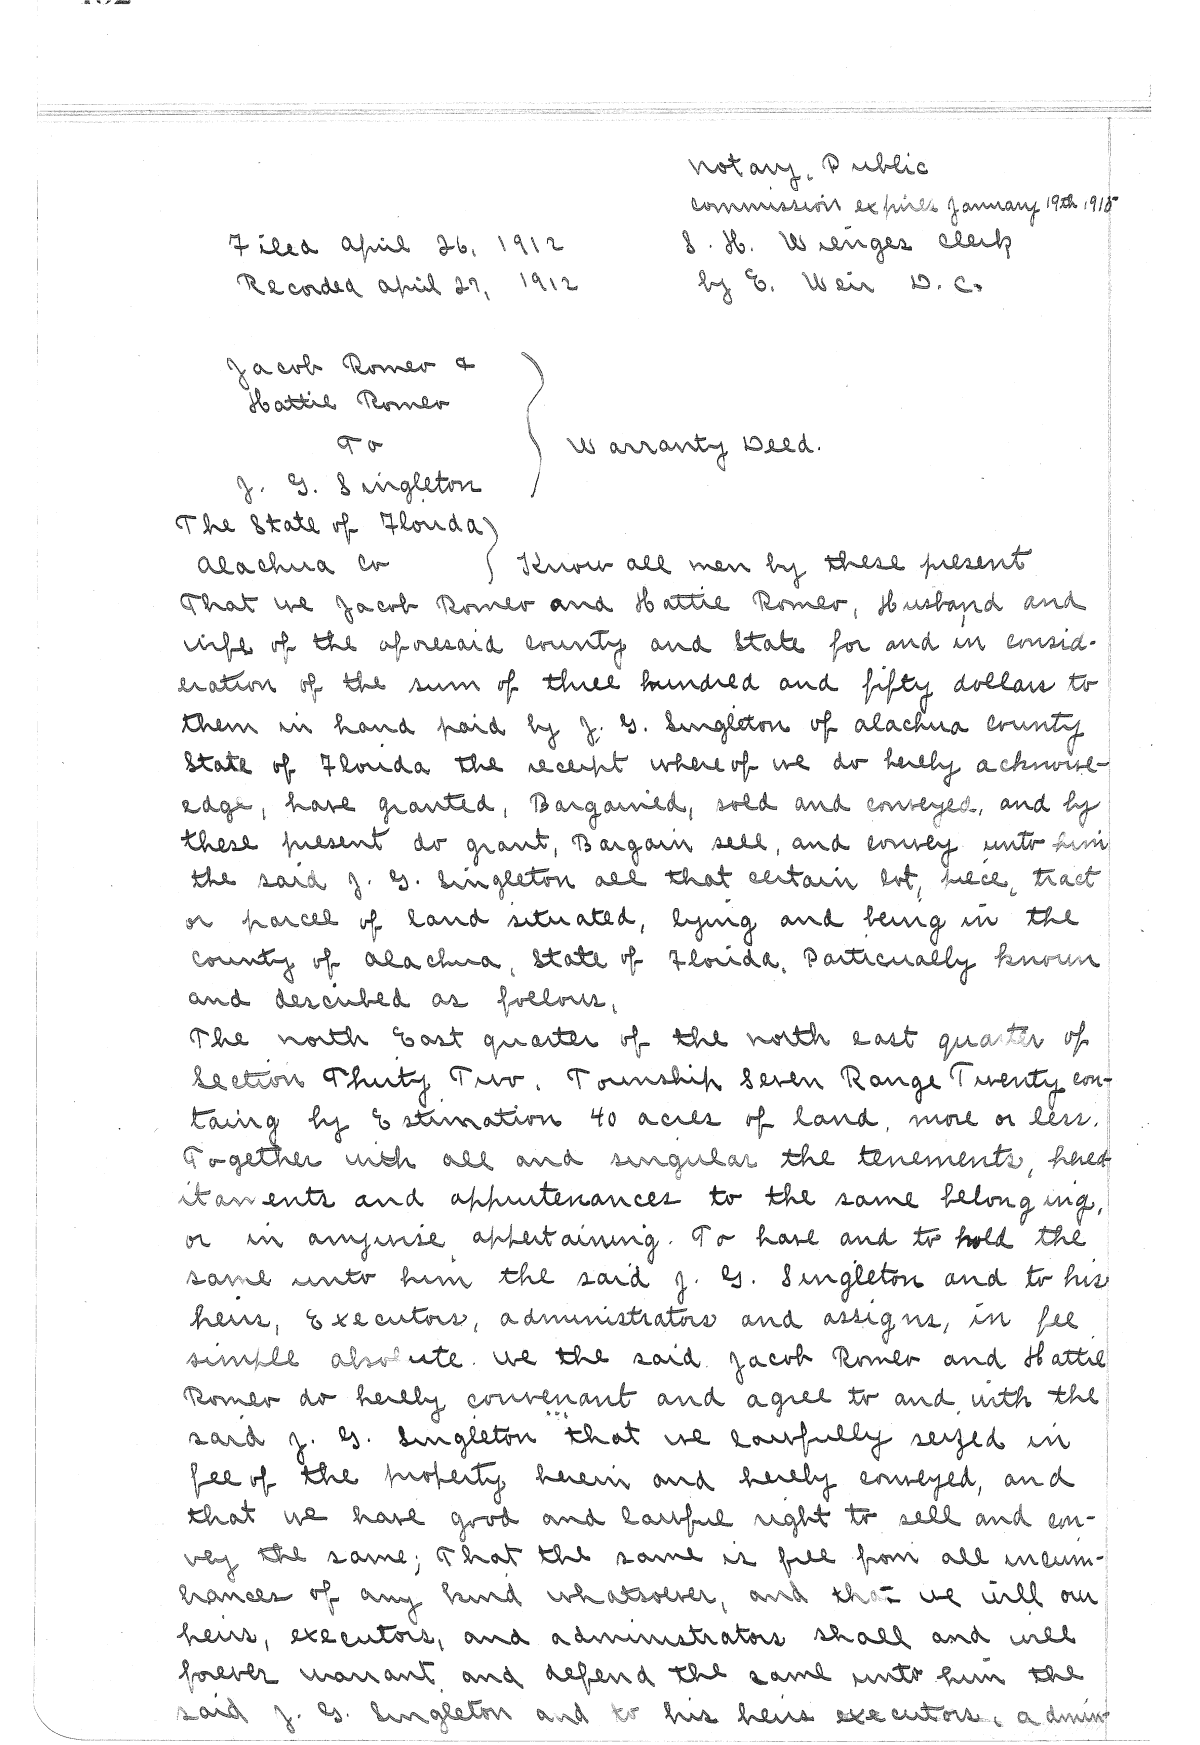 Notary, Public
commission expires January 19th 1915
Filed April 26, 1912 S. H. Wienges Clerk
Recorded April 27, 1912 by E. Weir D. C.
Jacob Romeo &
Hattie Romeo
To
Warranty Deed.
J. G. Singleton
The State of Florida
Alachua Co Know all men by these present
That we Jacob Romeo and Hattie Romeo, Husband and
wife of the aforesaid county and State for and in consid-
eration of the sum of three hundred and fifty dollars to
them in hand paid by J. G. Singleton of Alachua County
State of Florida the receipt whereof we do hereby acknowl-
edge, have granted, Bargained, sold and conveyed, and by
these present do grant, Bargain sell, and convey unto him
the said J. G. Singleton all that certain lot, piece, tract
or parcel of land situated, lying and being in the
County of Alachua, State of Florida, Particually known
and described as follows,
The north East quarter of the north east quarter of
Section Thirty Two, Township Seven Range Twenty con-
taing by Estimation 40 acres of land, more or less.
Together with all and singular the tenements, hered
itaments and appurtenances to the same belonging,
or in anywise appertaining. To have and to hold the
same unto him the said J. G. Singleton and to his
heirs, Executors, administrators and assigns, in fee
simple absolute. We the said Jacob Romeo and Hattie
Romeo do hereby convenant and agree to and with the
said J. G. Singleton that we lawfully seized in
fee of the property herein and hereby conveyed, and
that we have good and lawful right to sell and con-
vey the same; That the same is free from all incum-
brances of any kind whatsoever, and that we will our
heirs, executors, and administrators shall and will
forever warrant and defend the same unto him the
said J. G. Singleton and to his heirs executors, admin-